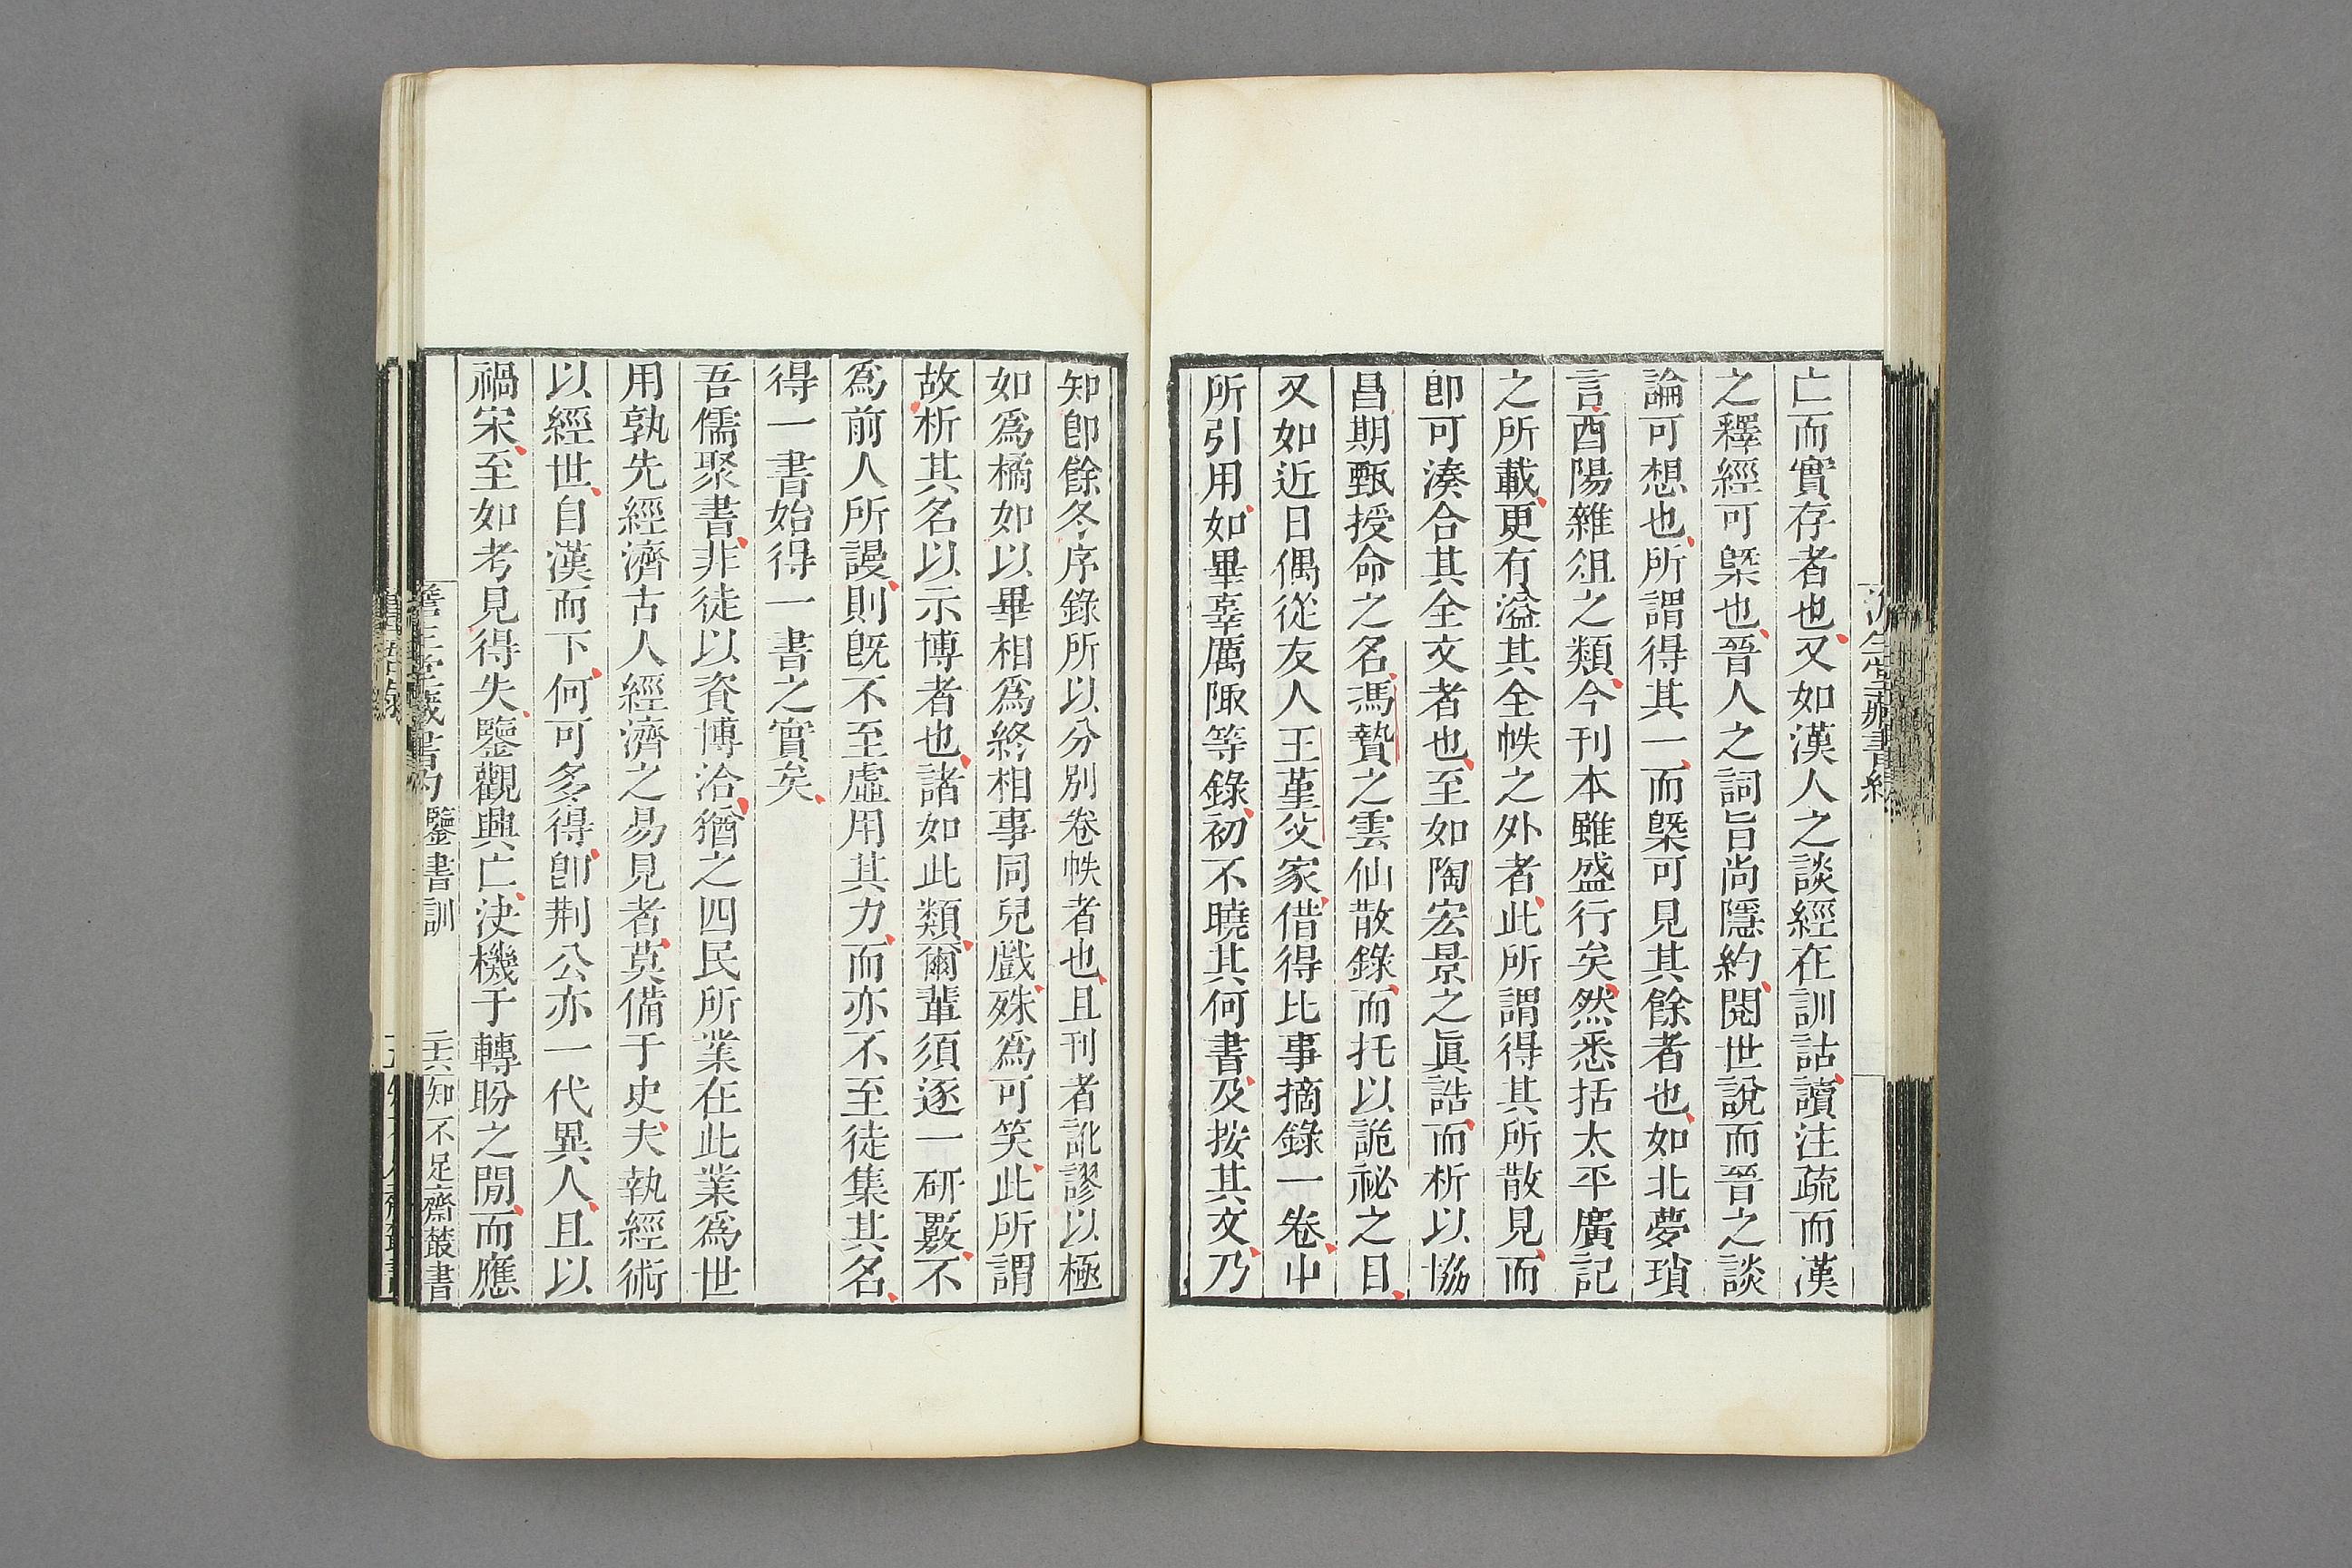 亡而實存者也又如漢人之談經在訓詁讀注疏而漢
之釋經可槩也晉人之詞旨尚隱約閱世說而晉之談
論可想也所謂得其一而槩可見其餘者也如北夢瑣
言酉陽雜俎之類今刊本雖盛行矣然悉括太平廣記
之所載更有溢其全帙之外者此所謂得其所散見而
卽可湊合其全文者也至如陶宏景之眞誥而析以協
昌期甄授命之名馮贄之雲仙散錄而托以詭祕之目
又如近日偶從友人王堇父家借得比事摘錄一卷中
所引用如畢辜厲陬等錄初不曉其何書及按其文乃
知卽餘冬序錄所以分別卷帙者也且刊者訛謬以極
如爲橘如以畢相爲終相事同兒戲殊爲可笑此所謂
故析其名以示博者也諸如此類爾輩須逐一研覈不
爲前人所謾則旣不至虛用其力而亦不至徒集其名
得一書始得一書之實矣
吾儒聚書非徒以資博洽猶之四民所業在此業爲世
用孰先經濟古人經濟之易見者莫備于史夫執經術
以經世自漢而下何可多得卽荆公亦一代異人且以
禍宋至如考見得失鑒觀興亡決機于轉盼之間而應
澹生堂藏書約 鑒書訓 二六 知不足齋叢書